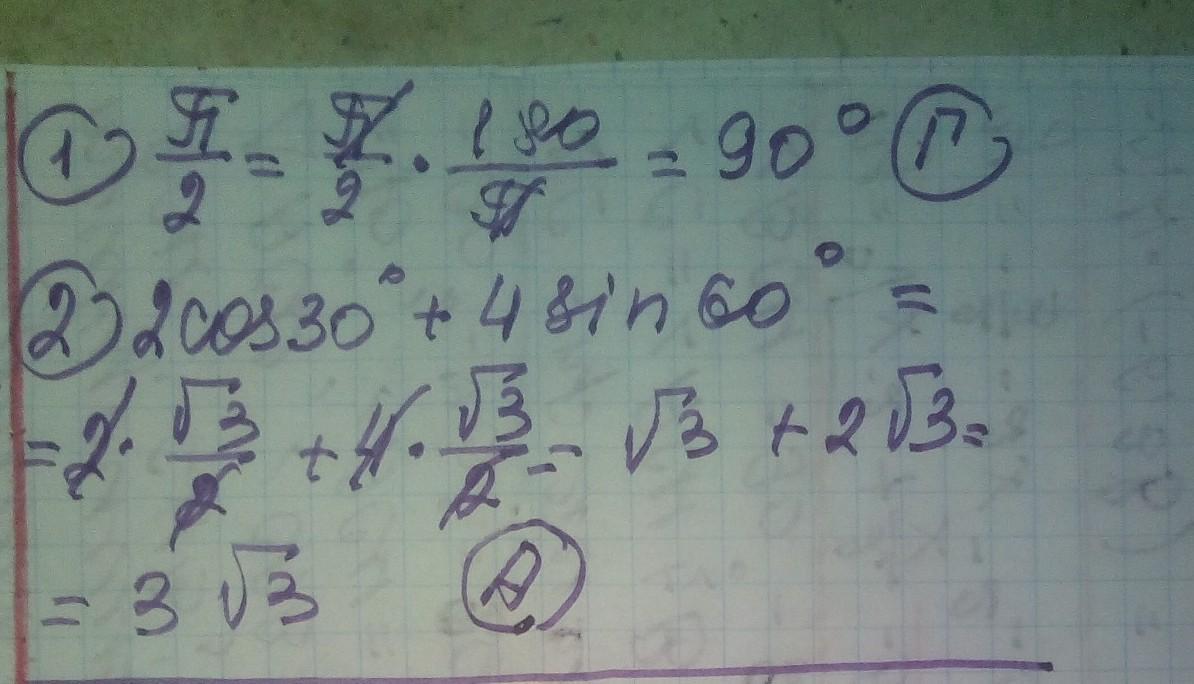 ① π/2 = π/2 · 180/π = 90° Г
② 2cos30° + 4 sin 60° =
= 2 · √3/2 + 4 · √3/2 = √3 + 2√3 =
= 3 √3 А